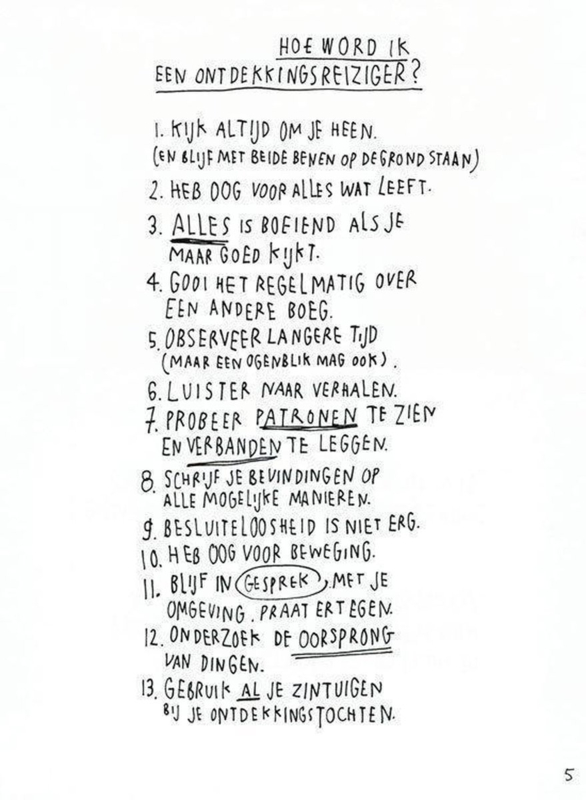 HOE WORD IK
EEN ONTDEKKINGSREIZIGER?
1. KIJK ALTIJD OM JE HEEN.
(EN BLIJF MET BEIDE BENEN OP DE GROND STAAN)
2. HEB OOG VOOR ALLES WAT LEEFT.
3. ALLES IS BOEIEND ALS JE
MAAR GOED KIJKT.
4. GOOI HET REGELMATIG OVER
EEN ANDERE BOEG.
5. OBSERVEER LANGERE TIJD
(MAAR EEN OGENBLIK MAG OOK).
6. LUISTER NAAR VERHALEN.
7. PROBEER PATRONEN TE ZIEN
EN VERBANDEN TE LEGGEN.
8. SCHRIJF JE BEVINDINGEN OP
ALLE MOGELIJKE MANIEREN.
9. BESLUITELOOSHEID IS NIET ERG.
10. HEB OOG VOOR BEWEGING.
11. BLIJF IN GESPREK, MET JE
OMGEVING. PRAAT ERTEGEN.
12. ONDERZOEK DE OORSPRONG
VAN DINGEN.
13. GEBRUIK AL JE ZINTUIGEN
BIJ JE ONTDEKKINGSTOCHTEN.
5